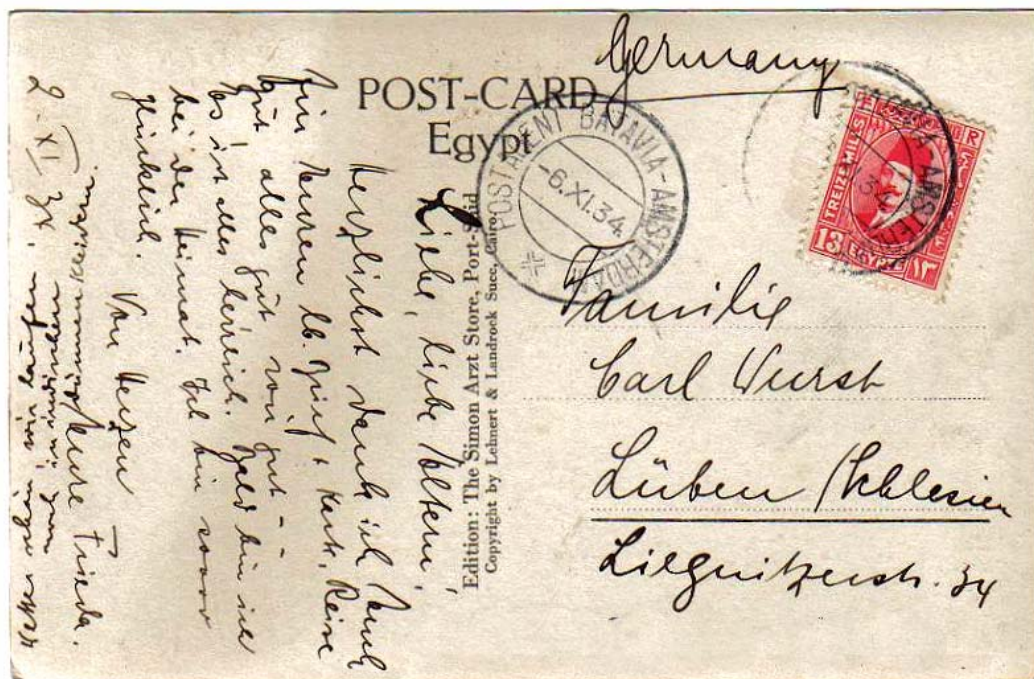 Germany
POST-CARD
Egypt
POSTAGENT BATAVIA-AMSTERDAM
-6.XI.34.
TREIZE MILLS
13 EGYPTE ١٣
Familie
Carl Wurst
Lüben /Schlesien
Liegnitzerstr. 34
Edition: The Simon Arzt Store, Port-Said
Copyright by Lehnert & Landrock Succ., Cairo.
Liebe, liebe Eltern,
Herzlichst danke ich Euch
für Euren lb. Brief + Karte. Reise
gut alles gut von gut –
Es ist alles herrlich. Bald bin ich
bei der Heimat. Ich bin soooo
glücklich. Von Herzen
Eure Frieda.
wir laufen
noch in indischen
dünnen Kleidern.